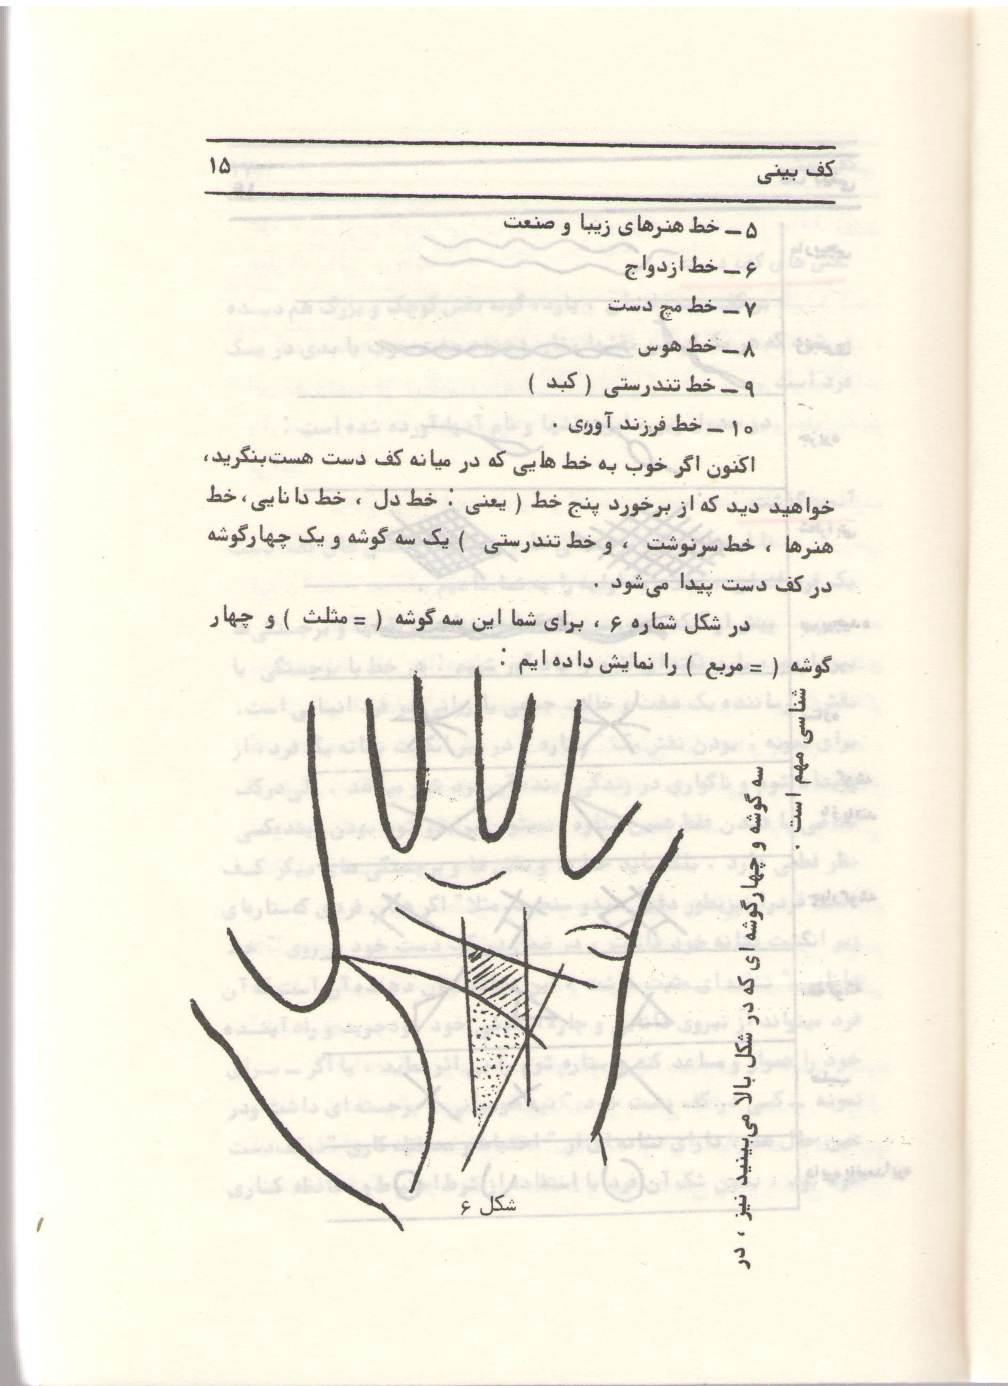 کف بینی ۱۵
۵ ــ خط هنرهای زیبا و صنعت
۶ ــ خط ازدواج
۷ ــ خط مچ دست
۸ ــ خط هوس
۹ ــ خط تندرستی ( کبد )
۱۰ ــ خط فرزند آوری .
اکنون اگر خوب به خط هایی که در میانه کف دست هست‌بنگرید،
خواهید دید که از برخورد پنج خط ( یعنی : خط دل ، خط دانایی، خط
هنرها ، خط سرنوشت ، و خط تندرستی ) یک سه گوشه و یک چهارگوشه
در کف دست پیدا می‌شود .
در شکل شماره ۶ ، برای شما این سه گوشه ( = مثلث ) و چهار
گوشه ( = مربع ) را نمایش داده ایم :
شکل ۶
سه گوشه و چهارگوشه ای که در شکل بالا می‌بینید نیز ، در
شناسی مهم است .